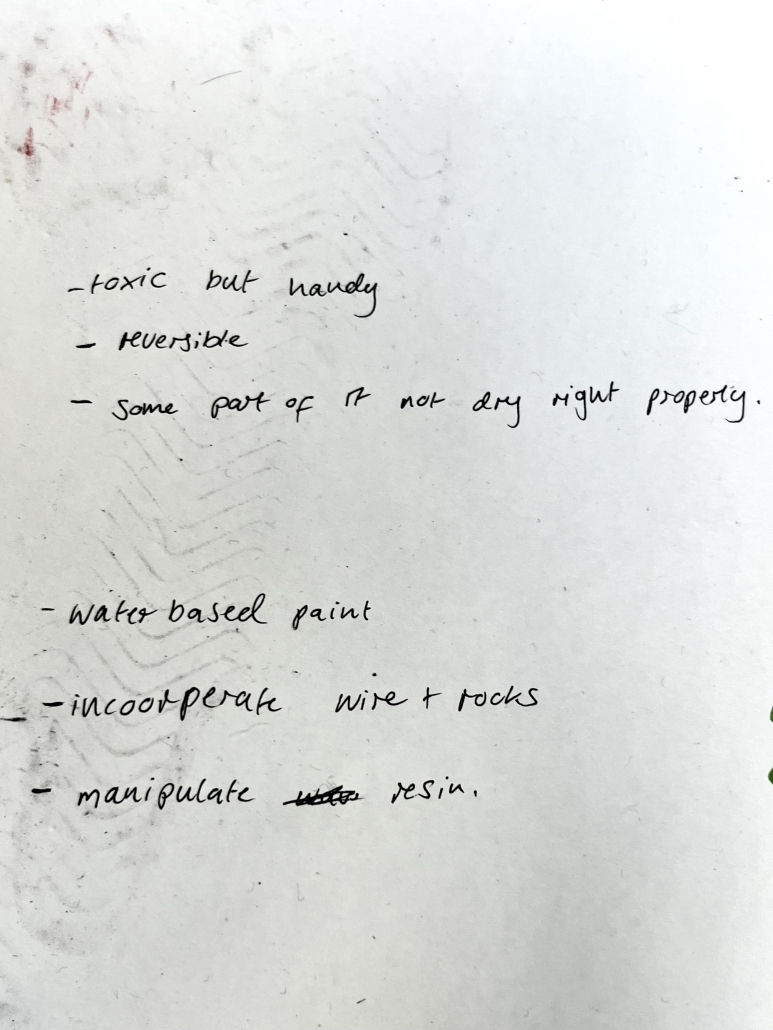 - toxic but handy
- reversible
- Some part of it not dry right properly.
- water based paint
- incoorperate wire + rocks
- manipulate resin.